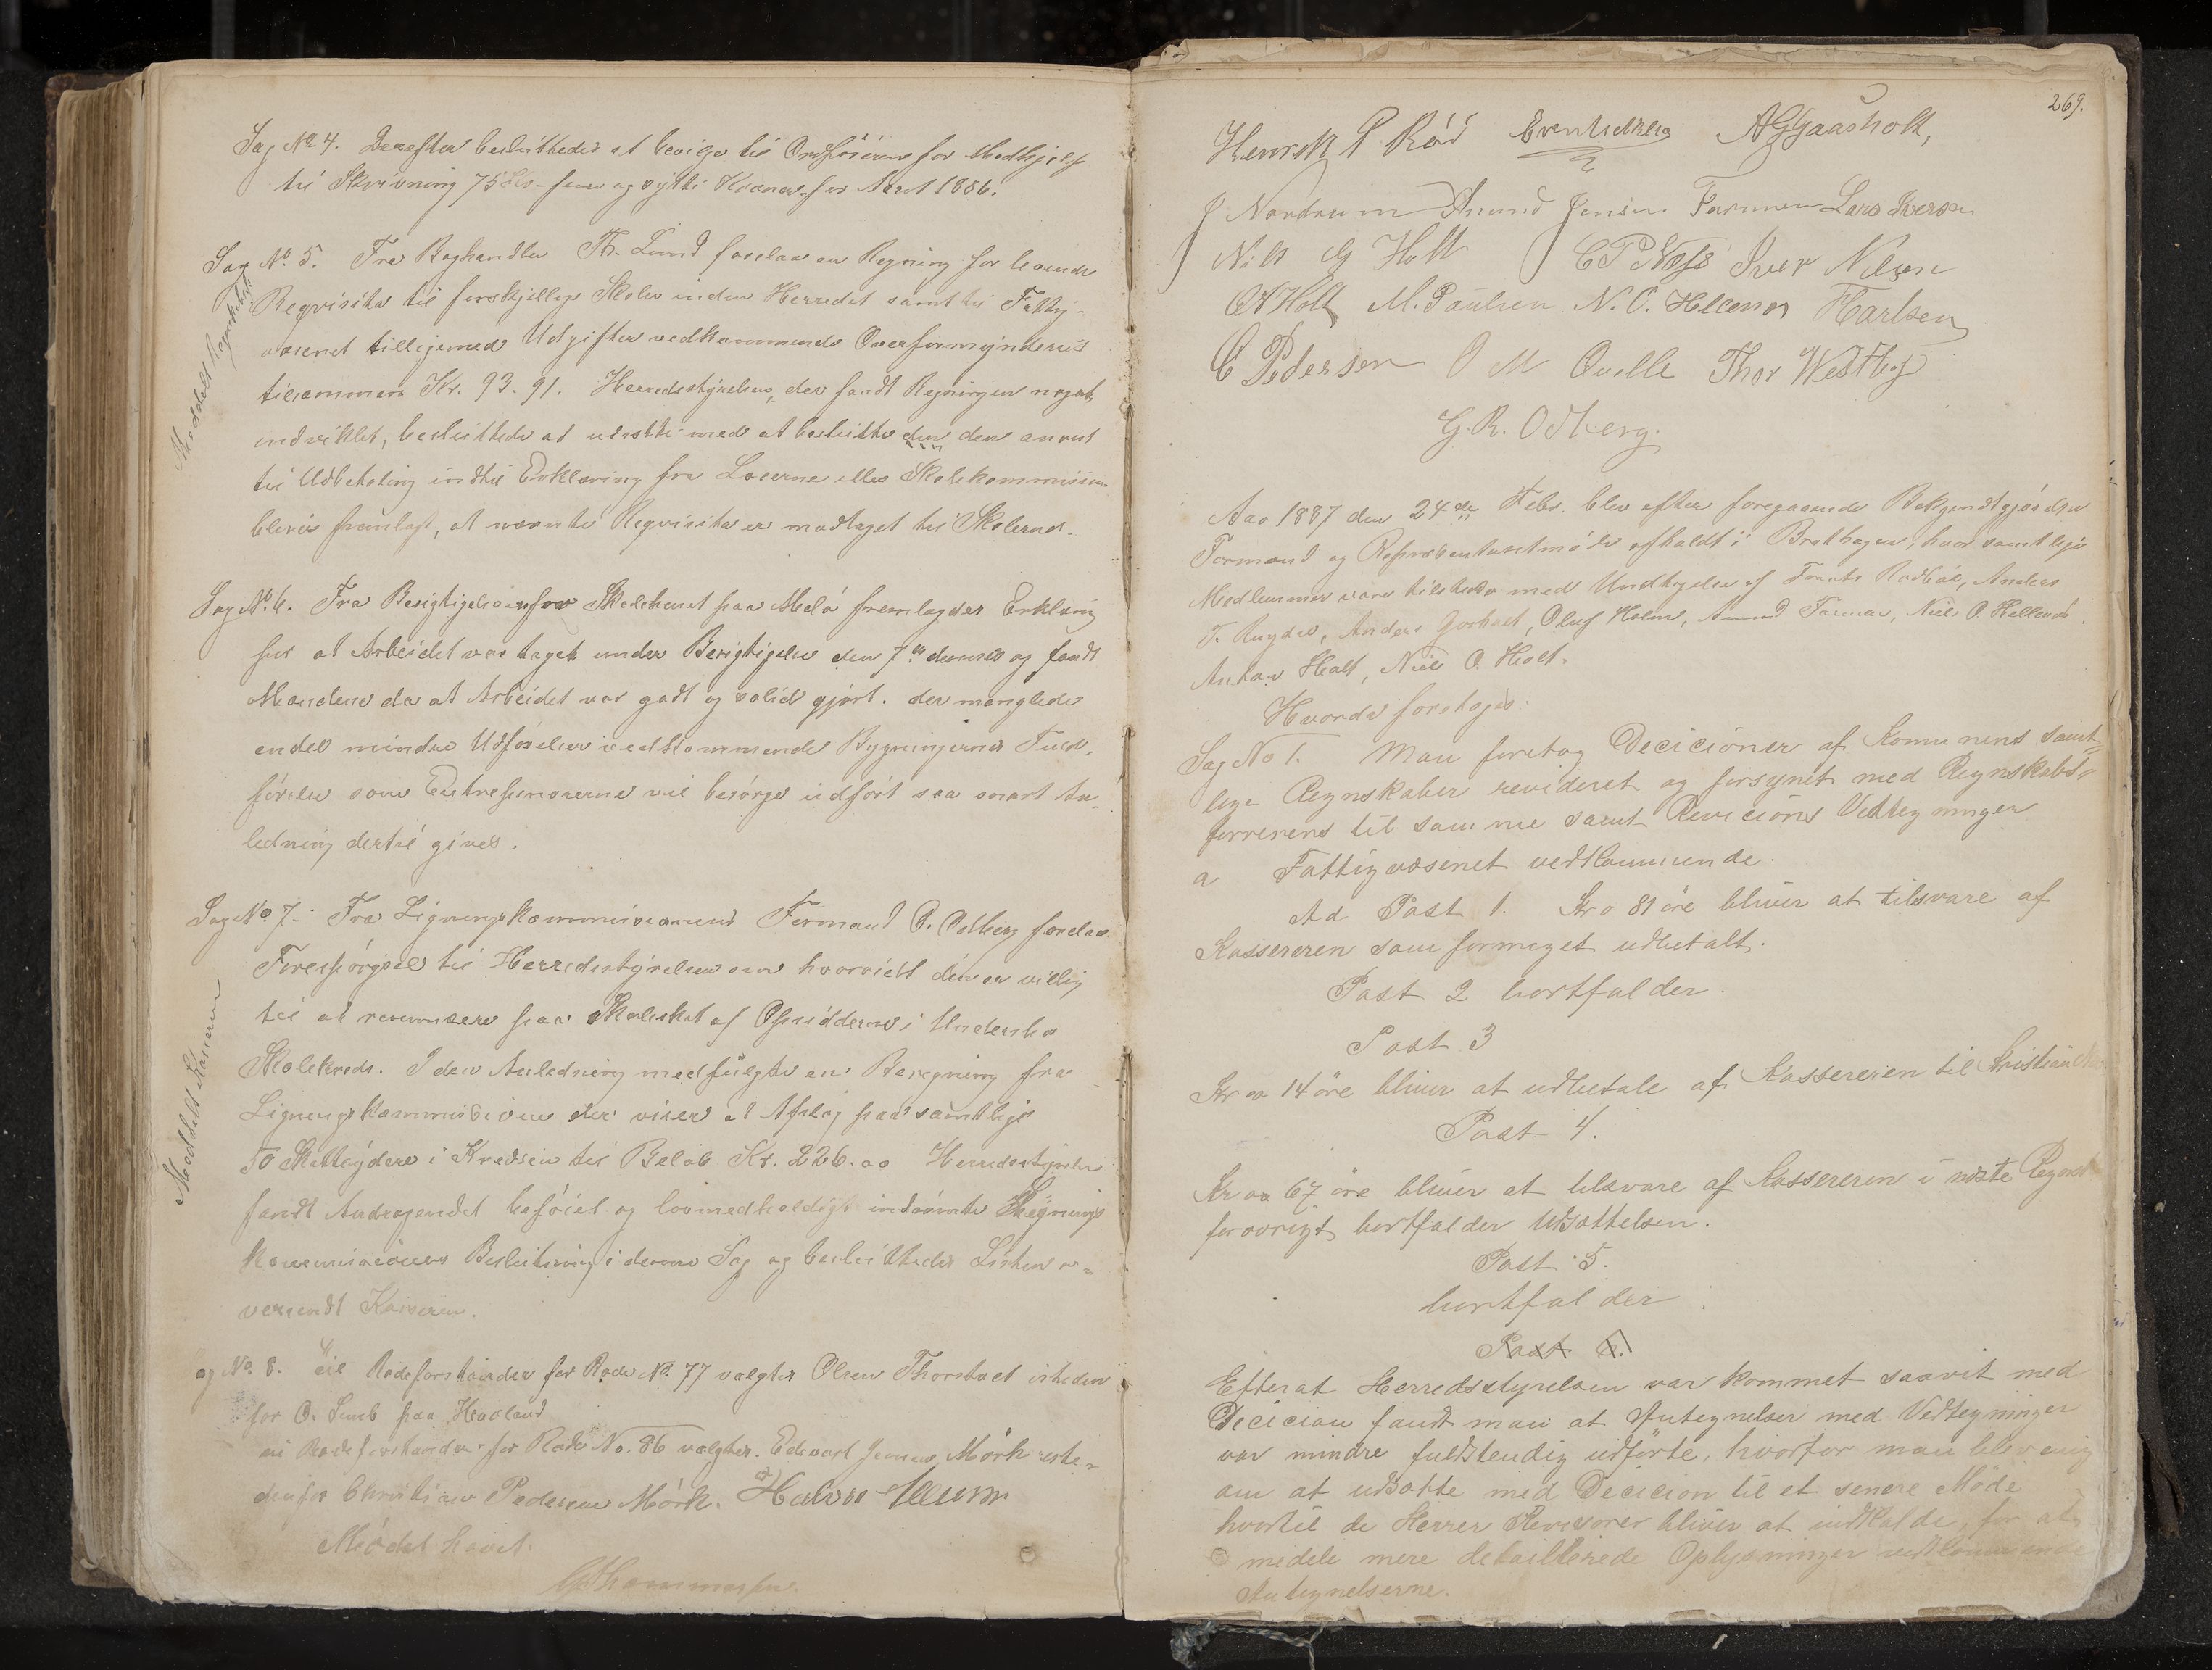 Sag No 4. Derefter besluttedes at bevilge til Ordføreren for Medhjelp
til Skrivning 75 kr - fem og sytti Kroner for Aaret 1886.
Sag No. 5. Fra Boghandler Th. Lund forelaa en Regning for leverede
Reqvisita til forskjellige Skoler inden Herredet samt til Fattig-
væsenet tilligemed Udgifter vedkommende Overformynderiet
tilsammen Kr. 93.91. Herredsstyrelsen, der fandt Regningen noget
indviklet, besluttede at udsætte med at beslutte den den anvist
til Udbetaling indtil Erklæring fra Lærerne eller Skolekommissionen
blever fremlagt, at nævnte Reqvisita er modtaget til Skolerne.
Sag No. 6. Fra Besigtigelsen for Skolehuset paa Melø fremlagdes Erklæring
for at Arbeidet var taget under Besigtigelse den 7de dennes og fandt
Mændene da at Arbeidet var godt og solid gjort. der manglede
endel mindre Udførelser vedkommende Bygningernes Fuld-
førelse som Entreprenørerne vil besørge udført saa snart An-
ledning dertil gives.
Sag No. 7. Fra Ligningskommissionens Formand O. Odberg forelaa
Forespørgsel til Herredsstyrelsen om hvorvidt den er villig
til at renonsere paa Skoleskat af Opsidderne i Undersbo
Skolekreds. I den Anledning medfulgte en Beregning fra
Ligningskommissionen der viser at Afslag paa samtlige
50 Skatteydere i Kredsen til Beløb Kr. 226.00 Herredsstyrelsen
fandt Andragendet beføiet og lovmedholdigt indrømte Lignings
kommissionens Beslutning i denne Sag og besluttedes Listen o-
versendt Kasseren.
Meddelt Regnskabsf.
Meddelt Kasseren
Sag No. 8. Til Rodeforstander for Rode No. 77 valgtes Olsen Thorstvet isteden
for O. Sund paa Haaland
til Rodeforstander for Rode No. 86 valgtes. Edvart Jensen Mørk iste-
denfor Christian Pedersen Mørk. Halvor Aaum
Mødet hævet.
G Thommesen
269.
Henrik P Rød AGGaasholt,
J Nordrum Amund Jensen Farmen Lars Iversen
Nils G Holt C P Næss Iver Nilsen
OA Holt M. Paulsen N. O. Hellenes F Karlsen
C Pedersen O M Quelle Thor Westby
G. R. Odberg.
Aar 1887 den 24de Febr. blev efter foregaaende Bekjendtgjørelse
Formand og Repræsentantmøde afholdt i Brækhagen, hvor samtlige
Medlemmer vare tilstede med Undtagelse af Frants Rødbøl, Anders
T. Rugden, Anders Gasholt, Oluf Holm, Amund Farmen, Niels O. Hellenes.
Anton Holt, Niels O. Holt.
Hvorda foretoges:
Sag No 1. Man foretog Decicioner af Komunens samt-
lige Regnskaber revideret og forsynet med Regnskabs-
førerens til samme samt Revicions Vedtegninger
a Fattigvæsenet vedkommende.
Ad Post 1. Kr o 81 öre bliver at tilsvare af
Kassereren som formeget udbetalt.
Post 2 bortfalder.
Post 3
Kr oo 14 öre bliver at udbetale af Kassereren til Kristian
Post 4.
Kr oo 67 öre bliver at tilsvare af Kassereren i næste Regnsk
forøvrigt bortfalder Udsættelsen.
Post 5.
bortfalder.
Post 6.
Efterat Herredsstyrelsen var kommet saavit med
Decicion fandt man at Antegnelser med Vedtegninger
var mindre fuldstendig udførte, hvorfor man blev enig
om at udsætte med Decicion til et senere Møde
hvortil de Herrer Revisorer bliver at indkalde, for at
medele mere detaillerede Oplysninger vedkommende
Antegnelserne.